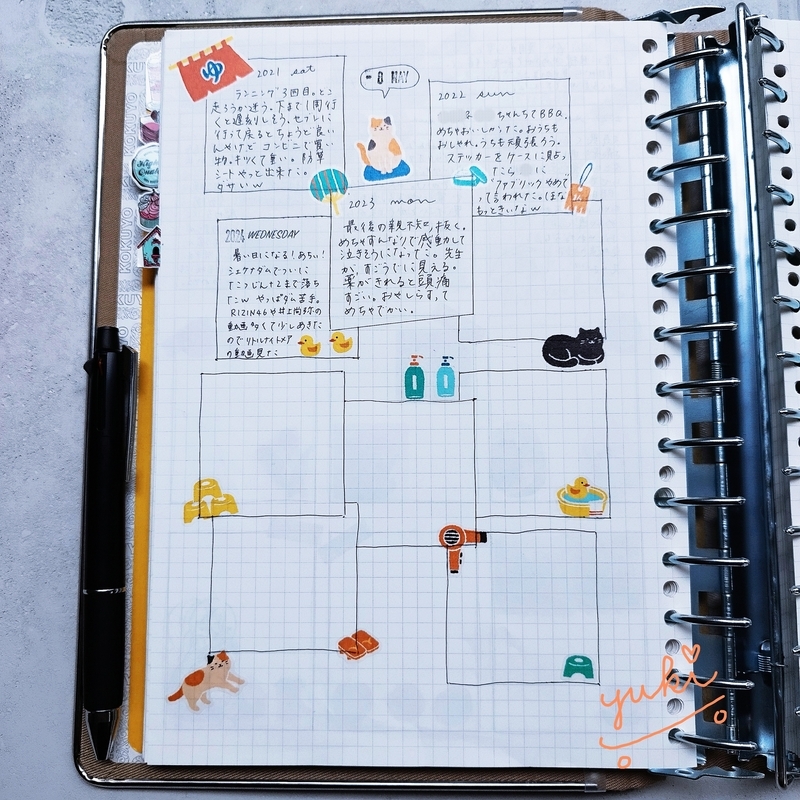 ゆ
2021 sat
ランニング3回目。とこ
走ろうか迷う。下まで1周行
くと遅刻しそう。セブンに
行って戻るとちょうど良い
んやけど コンビニで買い
物。キツくて重い。防草
シートやっと出来た。
ダサいw
8 MAY
2022 sun
ちゃんちでBBQ。
めちゃおいしかった。おうちも
おしゃれ。うちも頑張ろう。
ステッカーをケースに貼っ
たら に
"ファブリックやめて"
って言われた。
もっときいなw
2023 mon
最後の親不知抜く。
めちゃすんなりで感動して
泣きそうになってた。先生
が、すごうでに見える。
薬がきれると頭痛
すごい。おやしらずって
めちゃでかい。
2024 WEDNESDAY
暑い日になる!あちい!
シェケナダムでついに
たこつじんナ2まで落ち
たw やっぱダム苦手。
RIZIN46や井上尚弥の
動画多くて少しあきた
のでリトルナイトメア
の動画見た
KOKUYO
yuki